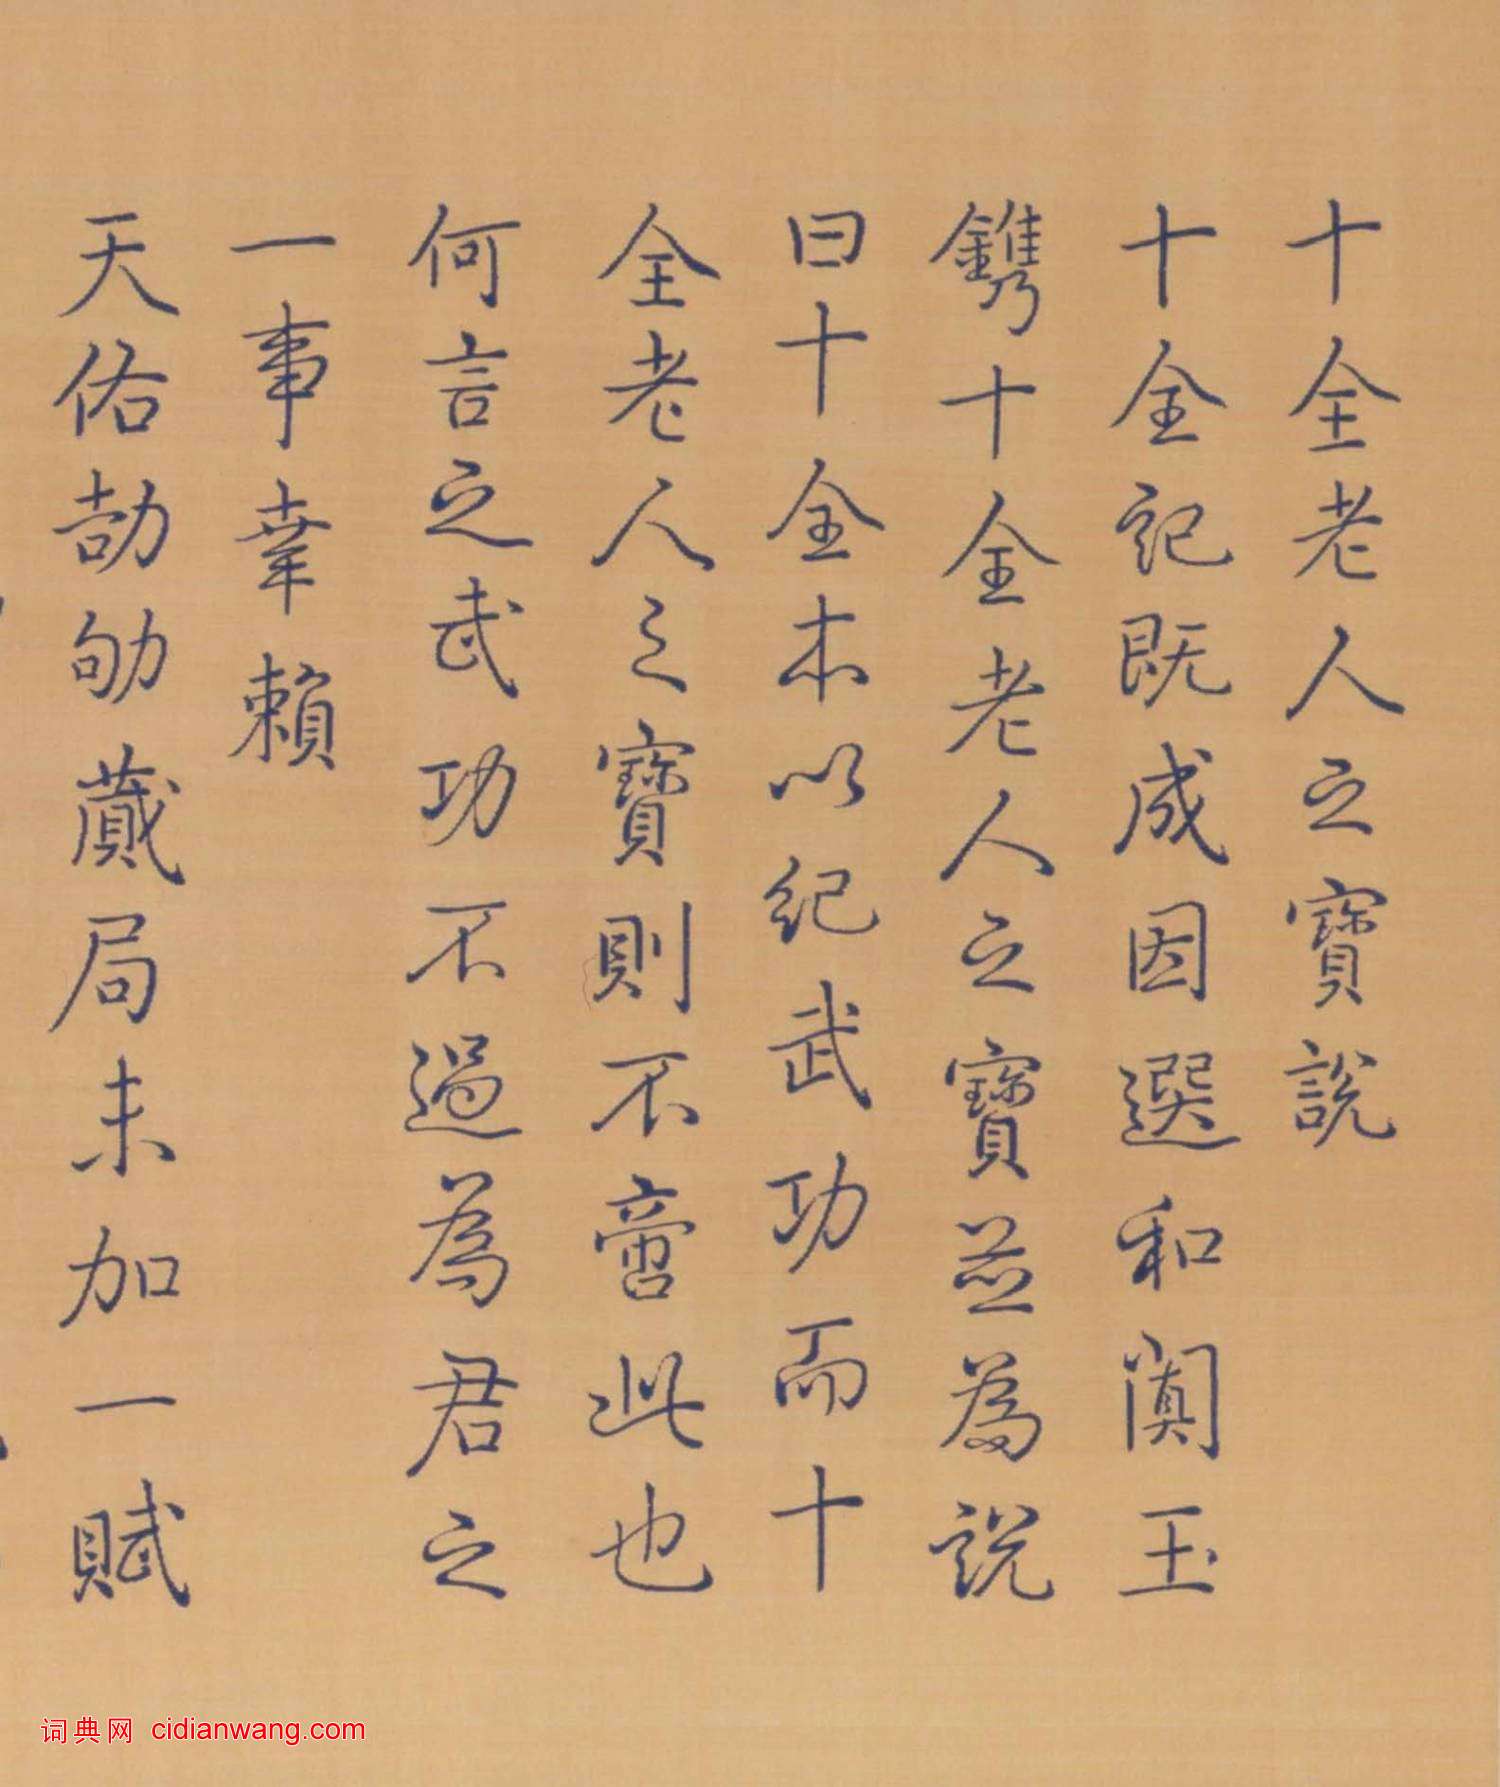 十全老人之寶說
十全記既成因選和闐玉
鐫十全老人之寶並為說
曰十全本以紀武功而十
全老人之寶則不啻此也
何言之武功不過為君之
一事幸賴
天佑劼劬蕆局未加一賦
词典网 cidianwang.com